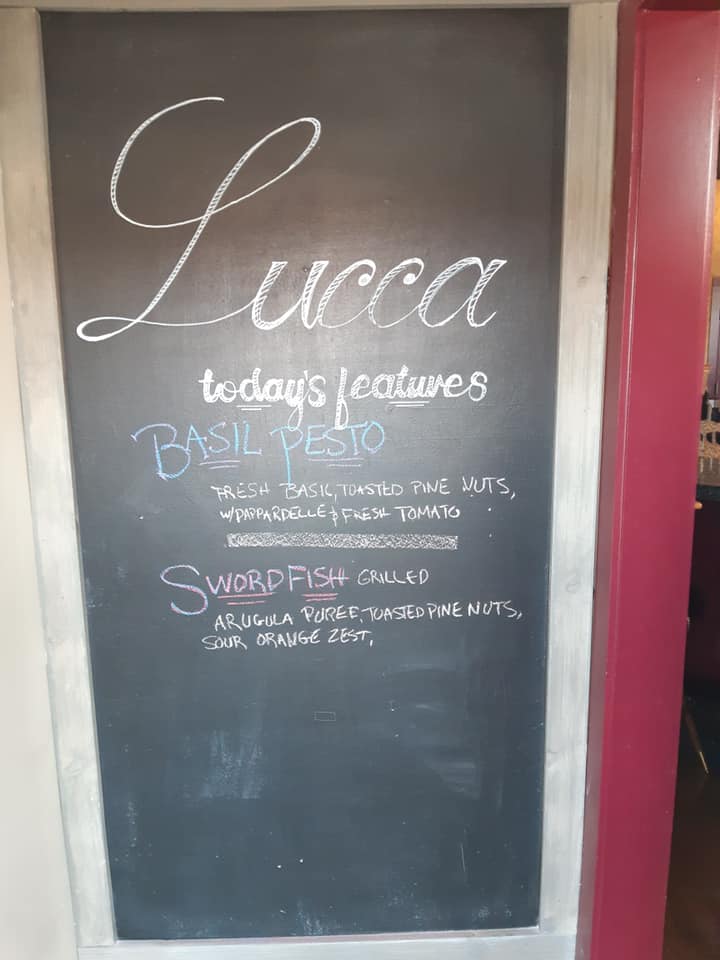 Lucca
today's features
BASIL PESTO
FRESH BASIL, TOASTED PINE NUTS,
W/PAPPARDELLE & FRESH TOMATO
SWORDFISH GRILLED
ARUGULA PUREE, TOASTED PINE NUTS,
SOUR ORANGE ZEST,